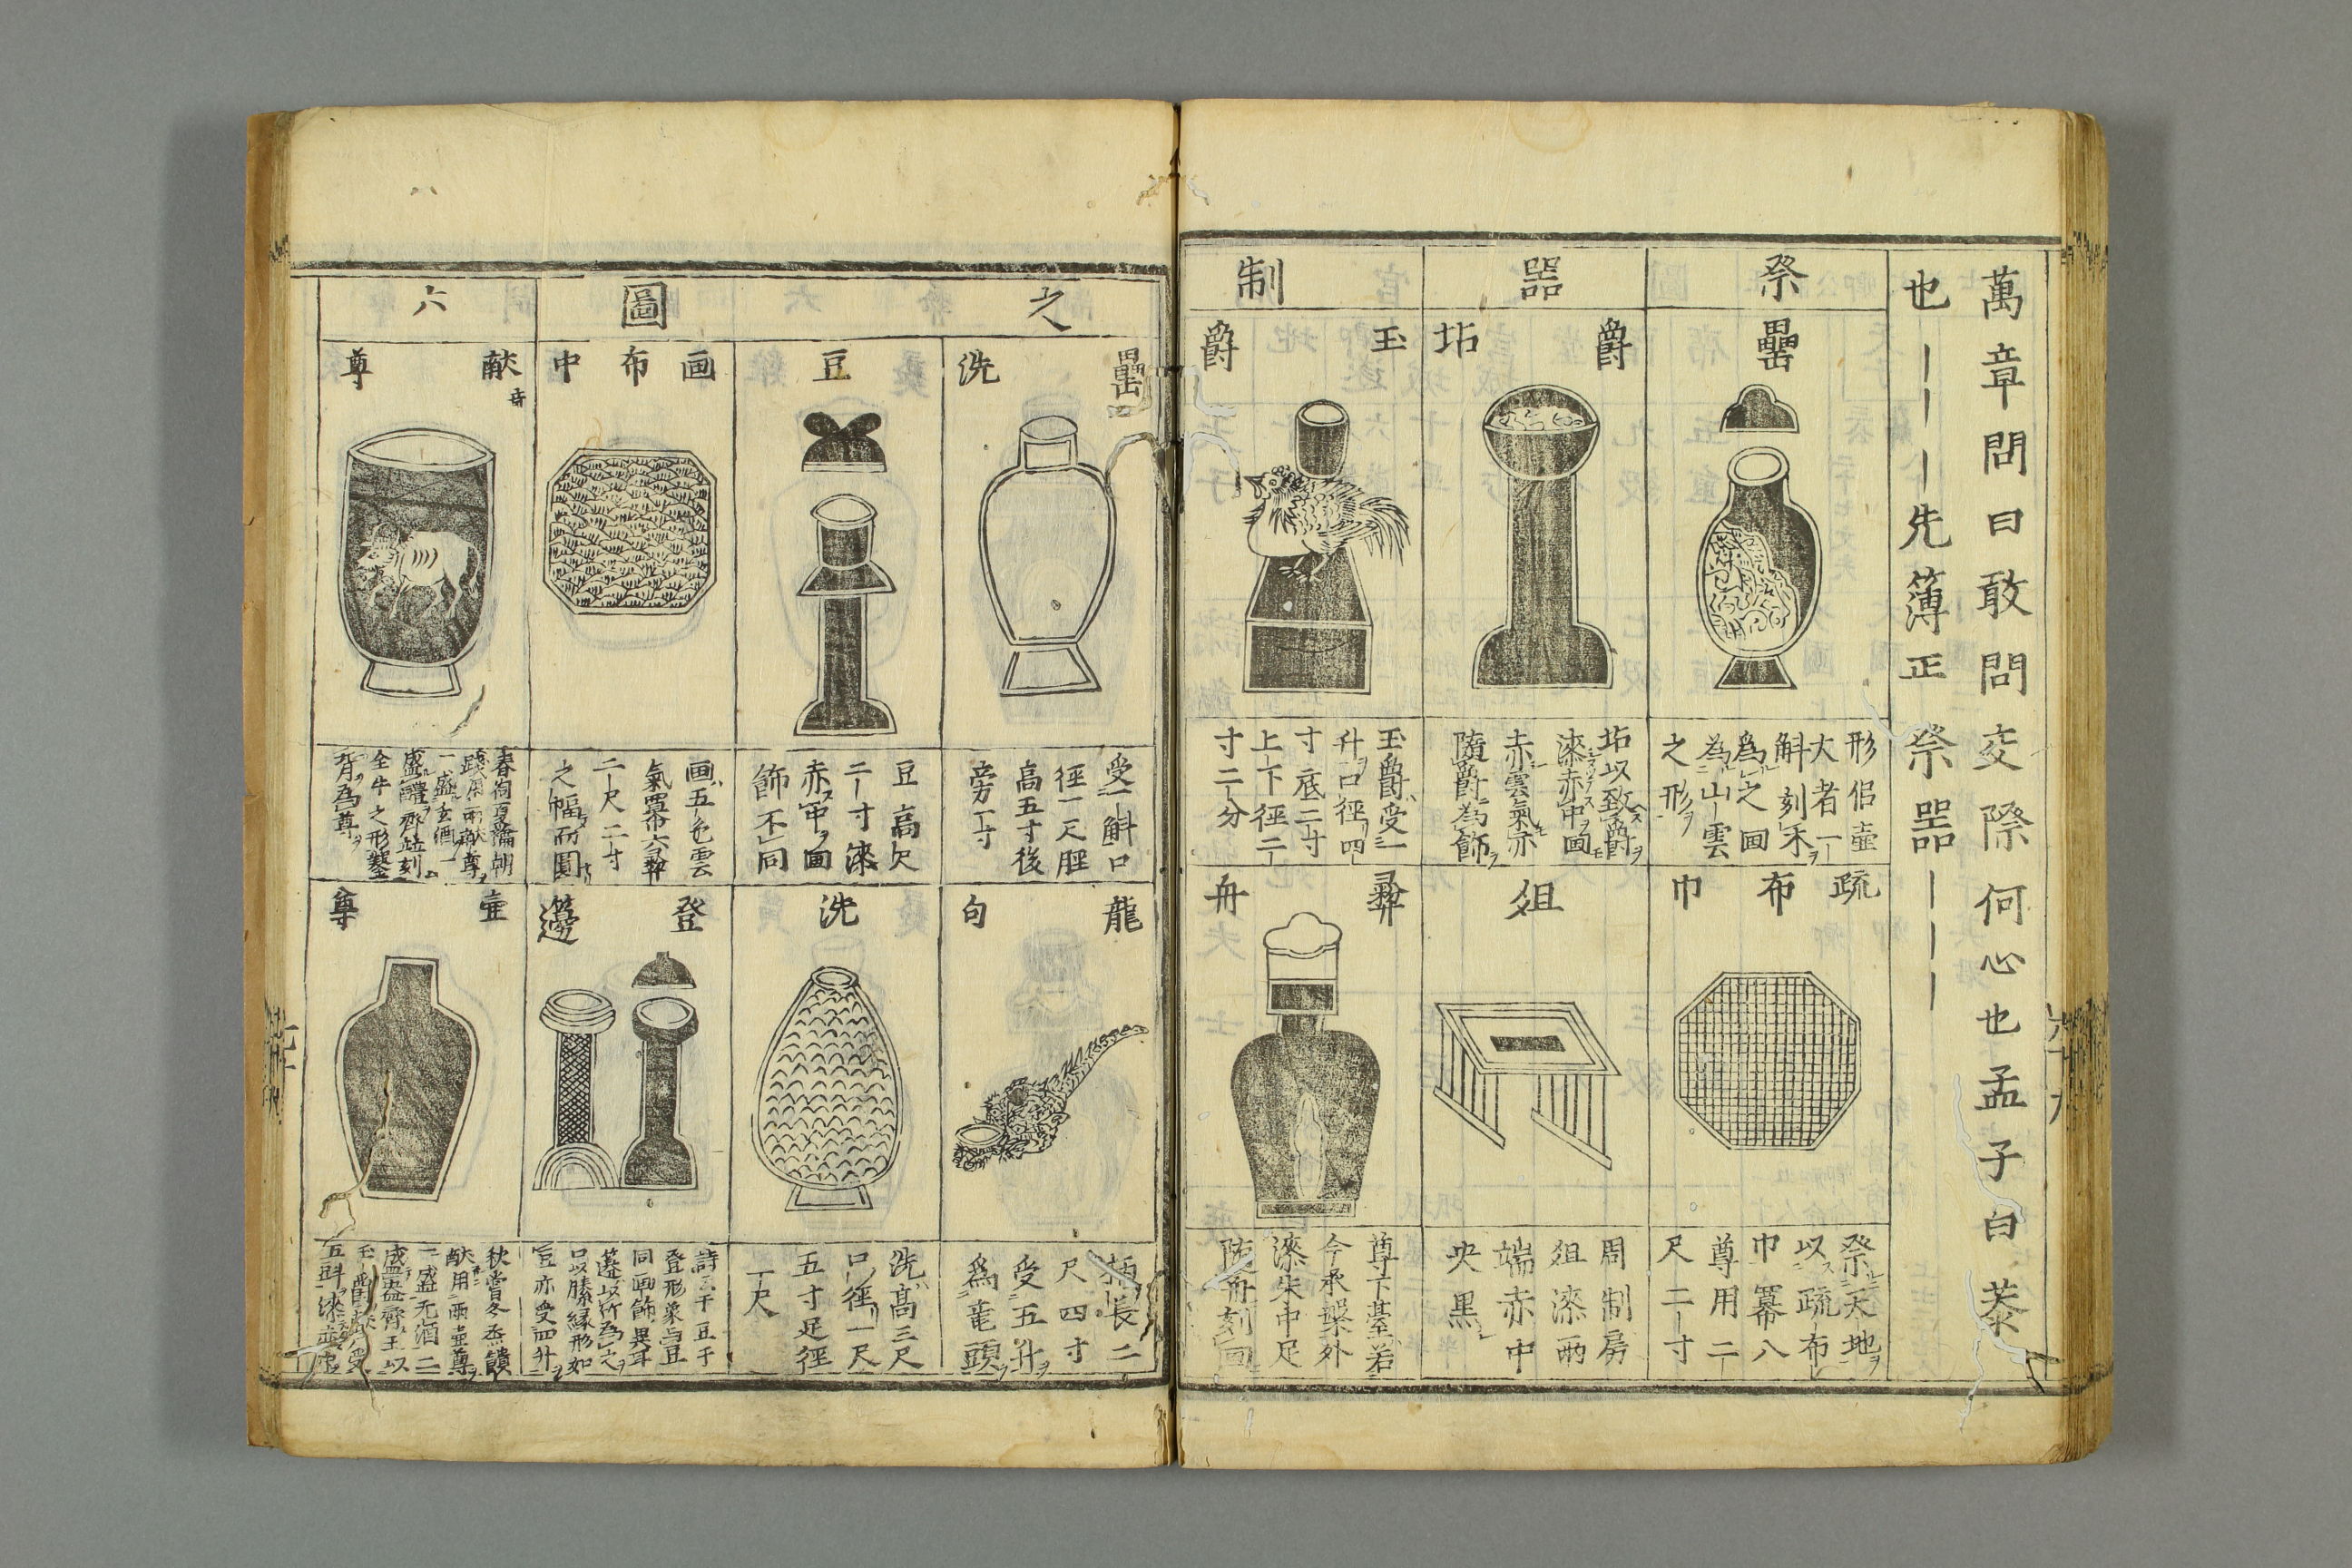 萬章問曰敢問交際何心也孟子曰恭
也｜｜｜先簿正祭器｜｜｜
祭器制
罍
形侣壷
大者一
斛刻禾
爲之画
為山雲
之形ヲ
爵坫
坫以致爵ヲ
漆赤中画
赤雲氣亦
隨爵為飾ヲ
玉爵
玉爵受一
升口径四
寸底二寸
上下径二
寸二分
疏布巾
祭天地ヲ
以疏布
巾冪八
尊用二
尺二寸
俎
周制房
俎漆兩
端赤中
央黒
彛舟
尊下臺若
今承槃外
漆朱中足
随舟刻画
之圖
罍洗
受一斛口
徑一尺脛
高五寸後
旁一寸
豆
豆高尺
二寸漆
赤中ヲ画
飾不同
画布巾
画五色雲
氣冪六彛
二尺二寸
之幅而圓
龍勺
柄長二
尺四寸
受五升ヲ
爲竜頭ヲ
洗
洗髙三尺
口径一尺
五寸足徑
一尺
登籩
詩云于豆于
登形象与豆
同画飾異耳
籩以竹為之ヲ
口以縢縁形如
豆亦受四升ヲ
六
献尊
春祠夏禴朝
踐用兩献尊ヲ
一盛玄酒一
盛醴齊ヲ並刻
全牛之形鑿
背為尊ヲ
壷尊
秋嘗冬烝饋
献用兩壷尊ヲ
一盛元酒二
盛盎齊王以
玉爵献受
五斗漆赤中
六十九